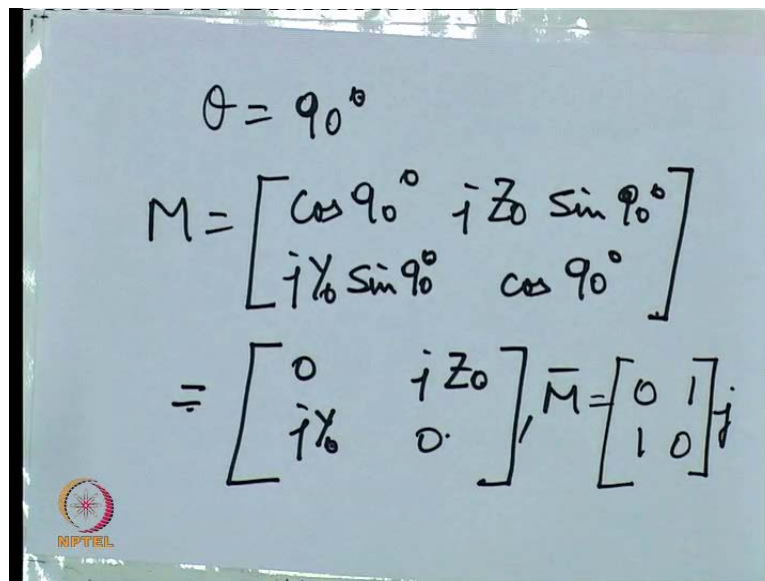 θ = 90°
M = [ cos 90° j Z0 sin 90°
j Y0 sin 90° cos 90° ]
= [ 0 j Z0
j Y0 0 ], M̄ = [ 0 1
1 0 ] j
NPTEL